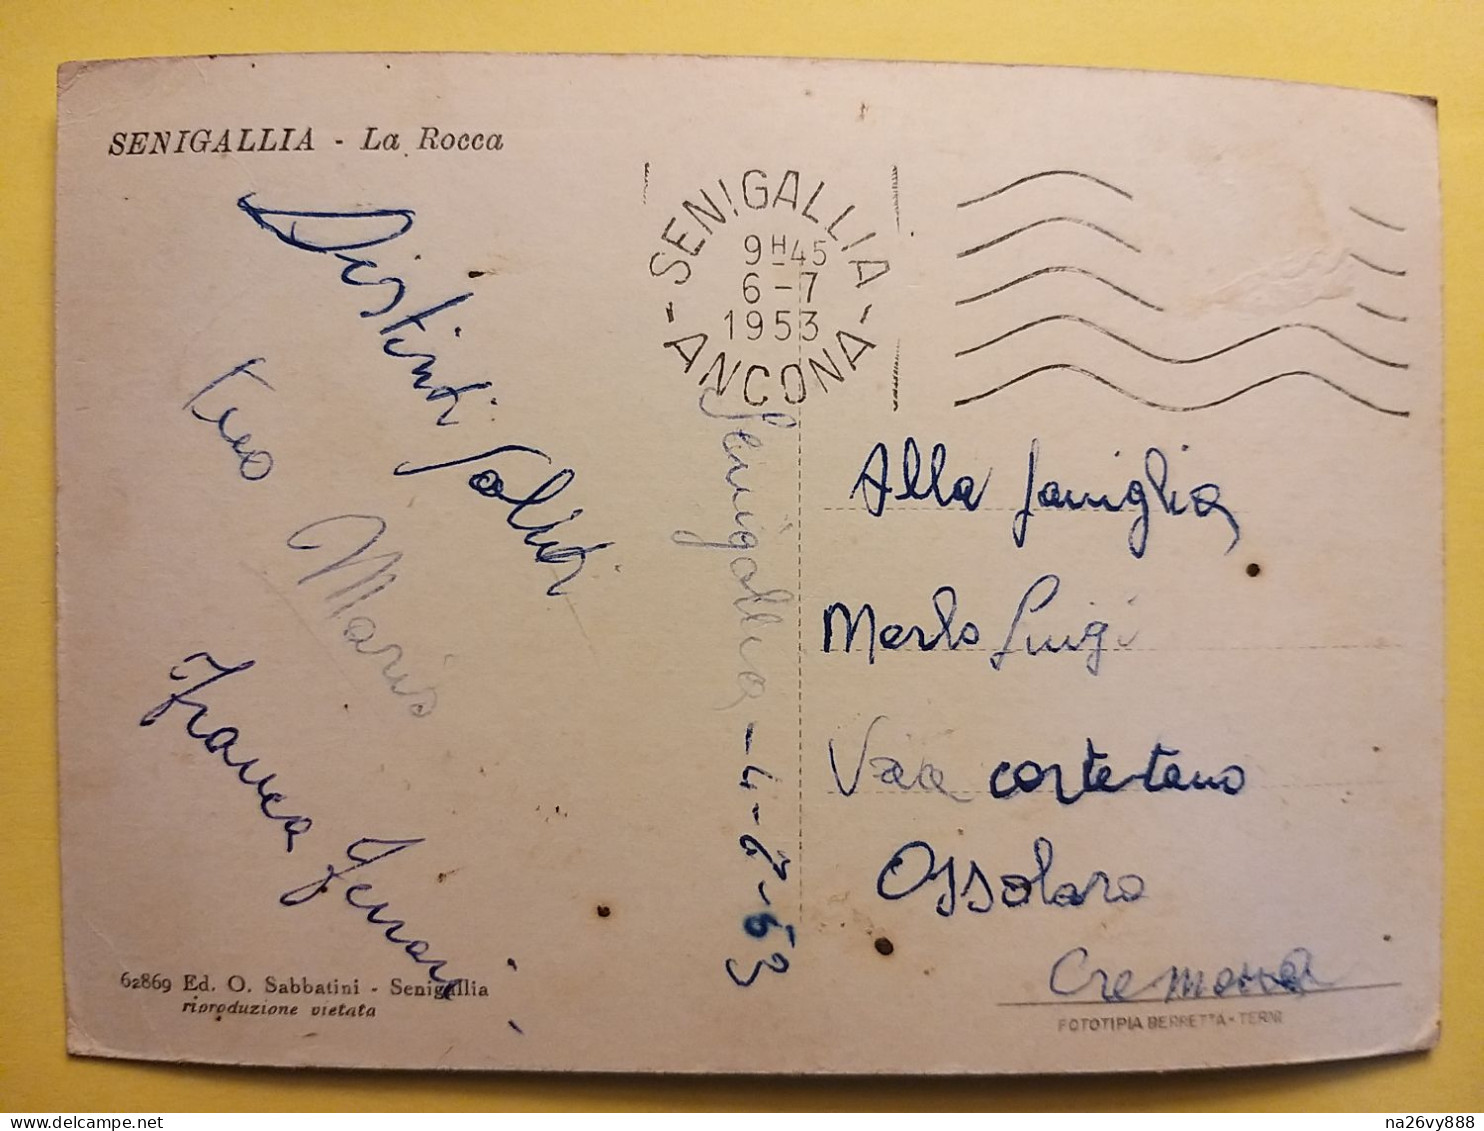 SENIGALLIA - La Rocca
SENIGALLIA
9H45
6-7
1953
- ANCONA -
Distinti Saluti
Mario
Franca
Senigallia - 4-7-53
Alla famiglia
Merlo Luigi
Via cortetano
Ossolaro
Cremona
62869 Ed. O. Sabbatini - Senigallia
riproduzione vietata
FOTOTIPIA BERRETTA - TERNI
na26vy888